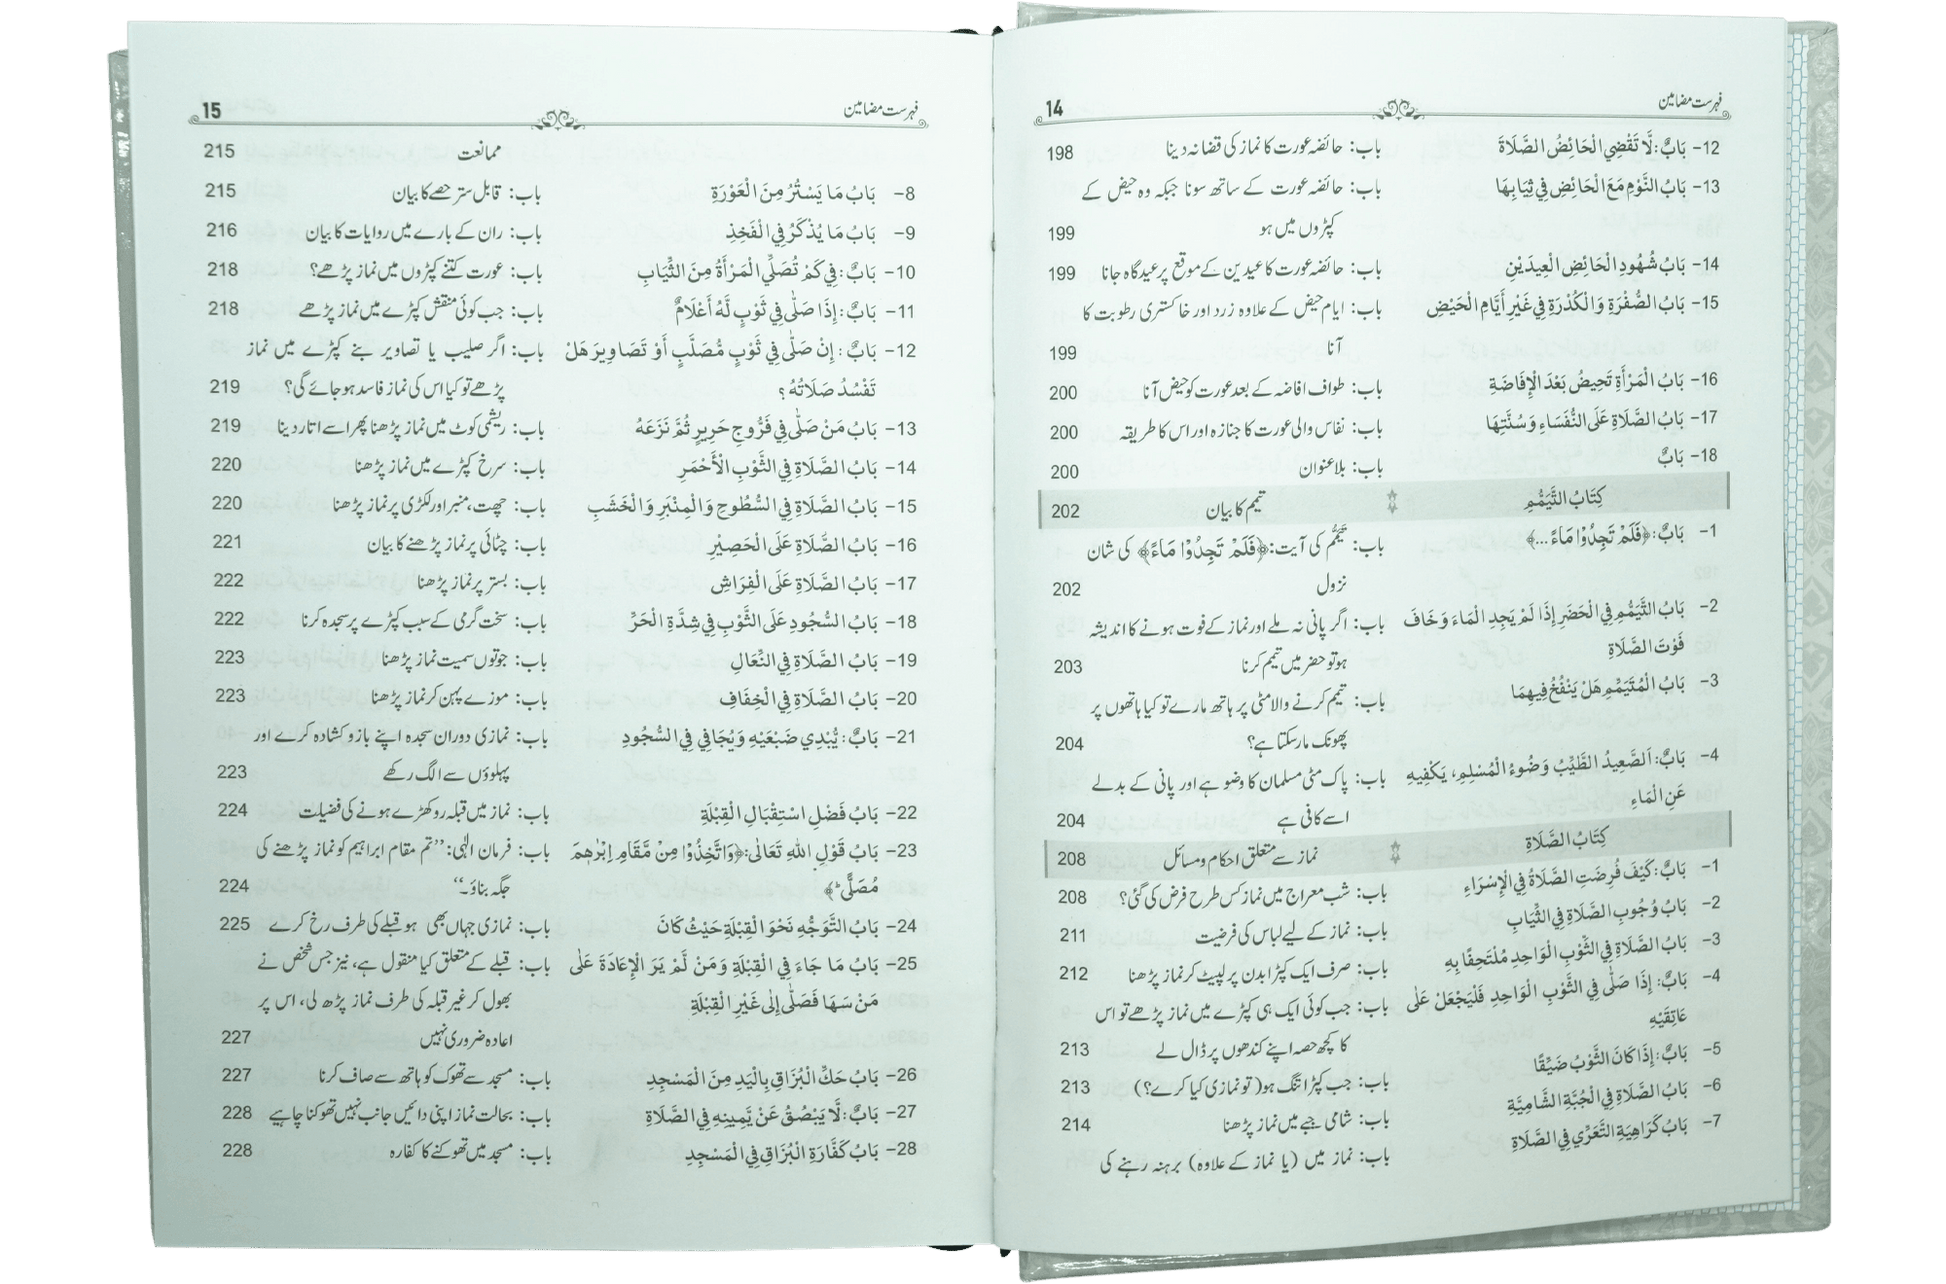 فہرست مضامین 14
12- بَابٌ: لَا تَقْضِي الْحَائِضُ الصَّلَاةَ باب: حائضہ عورت کا نماز کی قضا نہ دینا 198
13- بَابُ النَّوْمِ مَعَ الْحَائِضِ فِي ثِيَابِهَا باب: حائضہ عورت کے ساتھ سونا جبکہ وہ حیض کے
کپڑوں میں ہو 199
14- بَابُ شُهُودِ الْحَائِضِ الْعِيدَيْنِ باب: حائضہ عورت کا عیدین کے موقع پر عیدگاہ جانا 199
15- بَابُ الصُّفْرَةِ وَالْكُدْرَةِ فِي غَيْرِ أَيَّامِ الْحَيْضِ باب: ایام حیض کے علاوہ زرد اور خاکستری رطوبت کا
آنا 199
16- بَابُ الْمَرْأَةِ تَحِيضُ بَعْدَ الْإِفَاضَةِ باب: طواف افاضہ کے بعد عورت کو حیض آنا 200
17- بَابُ الصَّلَاةِ عَلَى النُّفَسَاءِ وَسُنَّتِهَا باب: نفاس والی عورت کا جنازہ اور اس کا طریقہ 200
18- بَابٌ باب: بلا عنوان 200
كِتَابُ التَّيَمُّمِ تیمم کا بیان 202
1- بَابٌ: ﴿فَلَمْ تَجِدُوْا مَاءً ...﴾ باب: تیمّم کی آیت: ﴿فَلَمْ تَجِدُوْا مَاءً﴾ کی شان
نزول 202
2- بَابُ التَّيَمُّمِ فِي الْحَضَرِ إِذَا لَمْ يَجِدِ الْمَاءَ وَخَافَ باب: اگر پانی نہ ملے اور نماز کے فوت ہونے کا اندیشہ
فَوْتَ الصَّلَاةِ ہو تو حضر میں تیمم کرنا 203
3- بَابُ الْمُتَيَمِّمِ هَلْ يَنْفُخُ فِيهِمَا باب: تیمم کرنے والا مٹی پر ہاتھ مارے تو کیا ہاتھوں پر
پھونک مار سکتا ہے؟ 204
4- بَابٌ: اَلصَّعِيدُ الطَّيِّبُ وَضُوءُ الْمُسْلِمِ، يَكْفِيهِ باب: پاک مٹی مسلمان کا وضو ہے اور پانی کے بدلے
عَنِ الْمَاءِ اسے کافی ہے 204
كِتَابُ الصَّلَاةِ نماز سے متعلق احکام و مسائل 208
1- بَابٌ: كَيْفَ فُرِضَتِ الصَّلَاةُ فِي الْإِسْرَاءِ باب: شب معراج میں نماز کس طرح فرض کی گئی؟ 208
2- بَابُ وُجُوبِ الصَّلَاةِ فِي الثِّيَابِ باب: نماز کے لیے لباس کی فرضیت 211
3- بَابُ الصَّلَاةِ فِي الثَّوْبِ الْوَاحِدِ مُلْتَحِفًا بِهِ باب: صرف ایک کپڑا بدن پر لپیٹ کر نماز پڑھنا 212
4- بَابٌ: إِذَا صَلَّى فِي الثَّوْبِ الْوَاحِدِ فَلْيَجْعَلْ عَلَى باب: جب کوئی ایک ہی کپڑے میں نماز پڑھے تو اس
عَاتِقَيْهِ کا کچھ حصہ اپنے کندھوں پر ڈال لے 213
5- بَابٌ: إِذَا كَانَ الثَّوْبُ ضَيِّقًا باب: جب کپڑا تنگ ہو (تو نمازی کیا کرے؟) 213
6- بَابُ الصَّلَاةِ فِي الْجُبَّةِ الشَّامِيَّةِ باب: شامی جبے میں نماز پڑھنا 214
7- بَابُ كَرَاهِيَةِ التَّعَرِّي فِي الصَّلَاةِ باب: نماز میں (یا نماز کے علاوہ) برہنہ رہنے کی
فہرست مضامین 15
ممانعت 215
8- بَابُ مَا يَسْتُرُ مِنَ الْعَوْرَةِ باب: قابل ستر حصے کا بیان 215
9- بَابُ مَا يُذْكَرُ فِي الْفَخِذِ باب: ران کے بارے میں روایات کا بیان 216
10- بَابٌ: فِي كَمْ تُصَلِّي الْمَرْأَةُ مِنَ الثِّيَابِ باب: عورت کتنے کپڑوں میں نماز پڑھے؟ 218
11- بَابٌ: إِذَا صَلَّى فِي ثَوْبٍ لَّهُ أَعْلَامٌ باب: جب کوئی منقش کپڑے میں نماز پڑھے 218
12- بَابٌ: إِنْ صَلَّى فِي ثَوْبٍ مُّصَلَّبٍ أَوْ تَصَاوِيرَ هَلْ باب: اگر صلیب یا تصاویر بنے کپڑے میں نماز
تَفْسُدُ صَلَاتُهُ؟ پڑھے تو کیا اس کی نماز فاسد ہو جائے گی؟ 219
13- بَابُ مَنْ صَلَّى فِي فَرُّوجِ حَرِيرٍ ثُمَّ نَزَعَهُ باب: ریشمی کوٹ میں نماز پڑھنا پھر اسے اتار دینا 219
14- بَابُ الصَّلَاةِ فِي الثَّوْبِ الْأَحْمَرِ باب: سرخ کپڑے میں نماز پڑھنا 220
15- بَابُ الصَّلَاةِ فِي السُّطُوحِ وَالْمِنْبَرِ وَالْخَشَبِ باب: چھت، منبر اور لکڑی پر نماز پڑھنا 220
16- بَابُ الصَّلَاةِ عَلَى الْحَصِيْرِ باب: چٹائی پر نماز پڑھنے کا بیان 221
17- بَابُ الصَّلَاةِ عَلَى الْفِرَاشِ باب: بستر پر نماز پڑھنا 222
18- بَابُ السُّجُودِ عَلَى الثَّوْبِ فِي شِدَّةِ الْحَرِّ باب: سخت گرمی کے سبب کپڑے پر سجدہ کرنا 222
19- بَابُ الصَّلَاةِ فِي النِّعَالِ باب: جوتوں سمیت نماز پڑھنا 223
20- بَابُ الصَّلَاةِ فِي الْخِفَافِ باب: موزے پہن کر نماز پڑھنا 223
21- بَابٌ: يُبْدِي ضَبْعَيْهِ وَيُجَافِي فِي السُّجُودِ باب: نمازی دوران سجدہ اپنے بازو کشادہ کرے اور
پہلوؤں سے الگ رکھے 223
22- بَابُ فَضْلِ اسْتِقْبَالِ الْقِبْلَةِ باب: نماز میں قبلہ رو کھڑے ہونے کی فضیلت 224
23- بَابُ قَوْلِ اللهِ تَعَالَى: ﴿وَاتَّخِذُوْا مِنْ مَّقَامِ اِبْرٰهٖمَ باب: فرمان الٰہی: ’’تم مقام ابراہیم کو نماز پڑھنے کی
مُصَلًّى ۖ﴾ جگہ بناؤ۔‘‘ 224
24- بَابُ التَّوَجُّهِ نَحْوَ الْقِبْلَةِ حَيْثُ كَانَ باب: نمازی جہاں بھی ہو قبلے کی طرف رخ کرے 225
25- بَابُ مَا جَاءَ فِي الْقِبْلَةِ وَمَنْ لَّمْ يَرَ الْإِعَادَةَ عَلَى باب: قبلے کے متعلق کیا منقول ہے، نیز جس شخص نے
مَنْ سَهَا فَصَلَّى إِلَى غَيْرِ الْقِبْلَةِ بھول کر غیر قبلہ کی طرف نماز پڑھ لی، اس پر
اعادہ ضروری نہیں 227
26- بَابُ حَكِّ الْبُزَاقِ بِالْيَدِ مِنَ الْمَسْجِدِ باب: مسجد سے تھوک کو ہاتھ سے صاف کرنا 227
27- بَابٌ: لَّا يَبْصُقُ عَنْ يَّمِينِهِ فِي الصَّلَاةِ باب: بحالت نماز اپنی دائیں جانب نہیں تھوکنا چاہیے 228
28- بَابُ كَفَّارَةِ الْبُزَاقِ فِي الْمَسْجِدِ باب: مسجد میں تھوکنے کا کفارہ 228